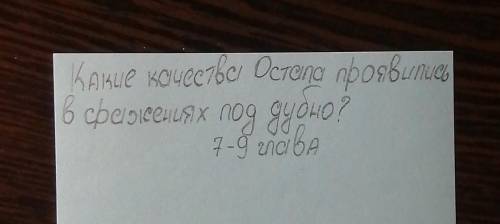 Какие качества Остапа проявились
в сражениях под дубно?
7-9 глава